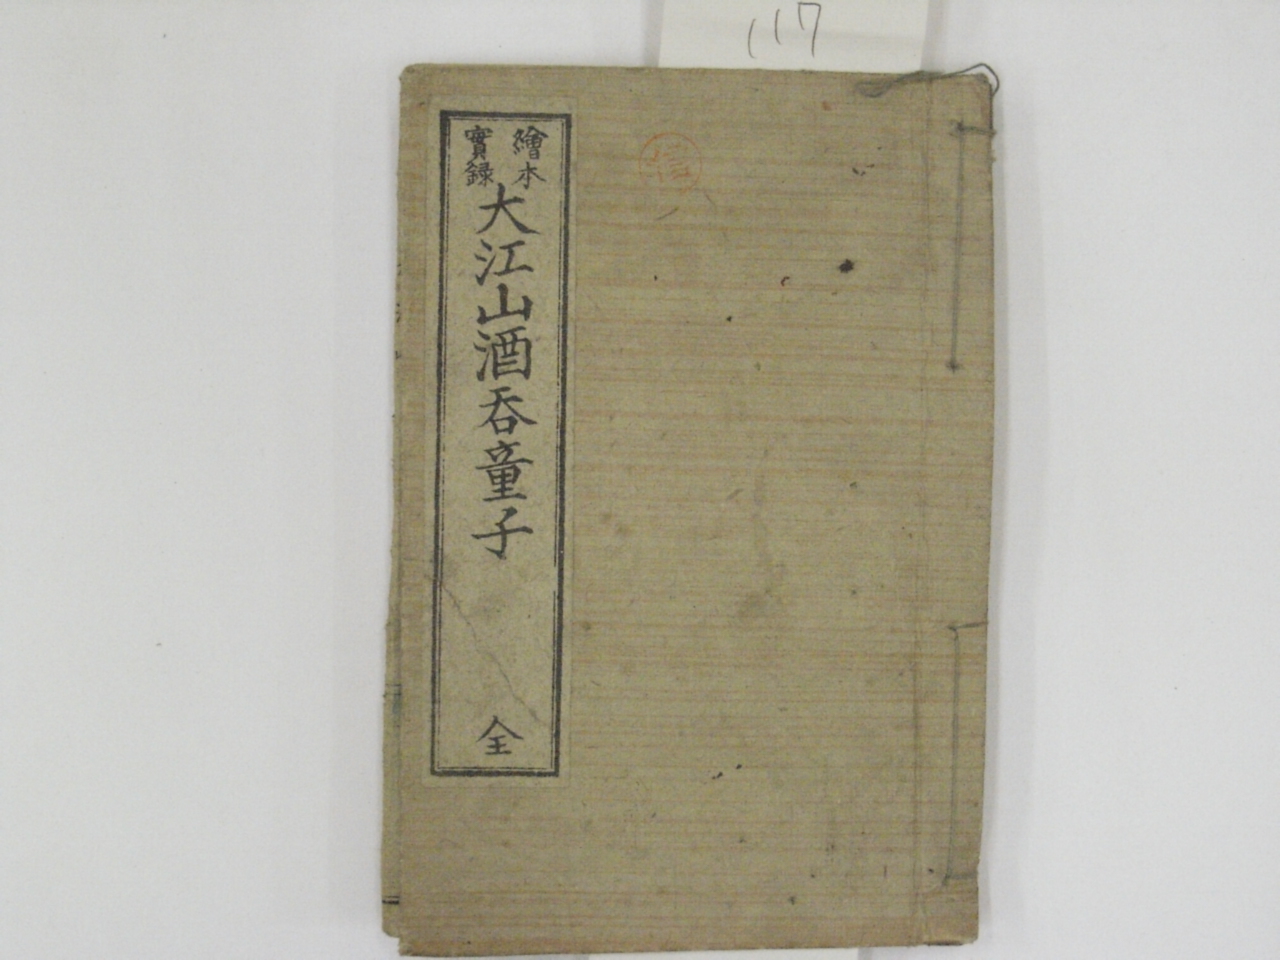 117
繪本
實録
大江山酒呑童子
全
信